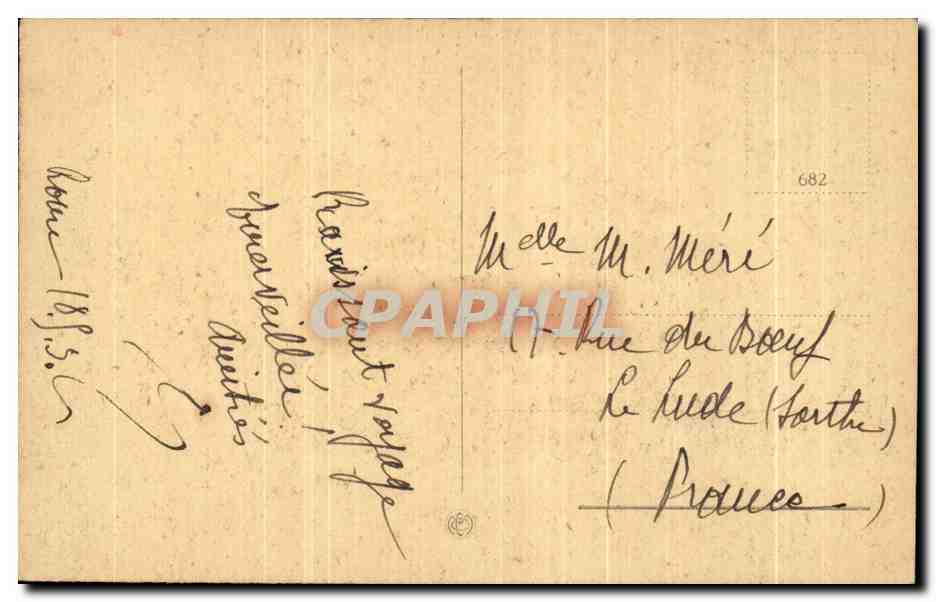 Ravissant voyage
émerveillée!
Amitiés
Rome 18.5.
682
Melle M. Méré
17. Rue du Bœuf
Le Lude (Sarthe)
(France)
CPAPHIL